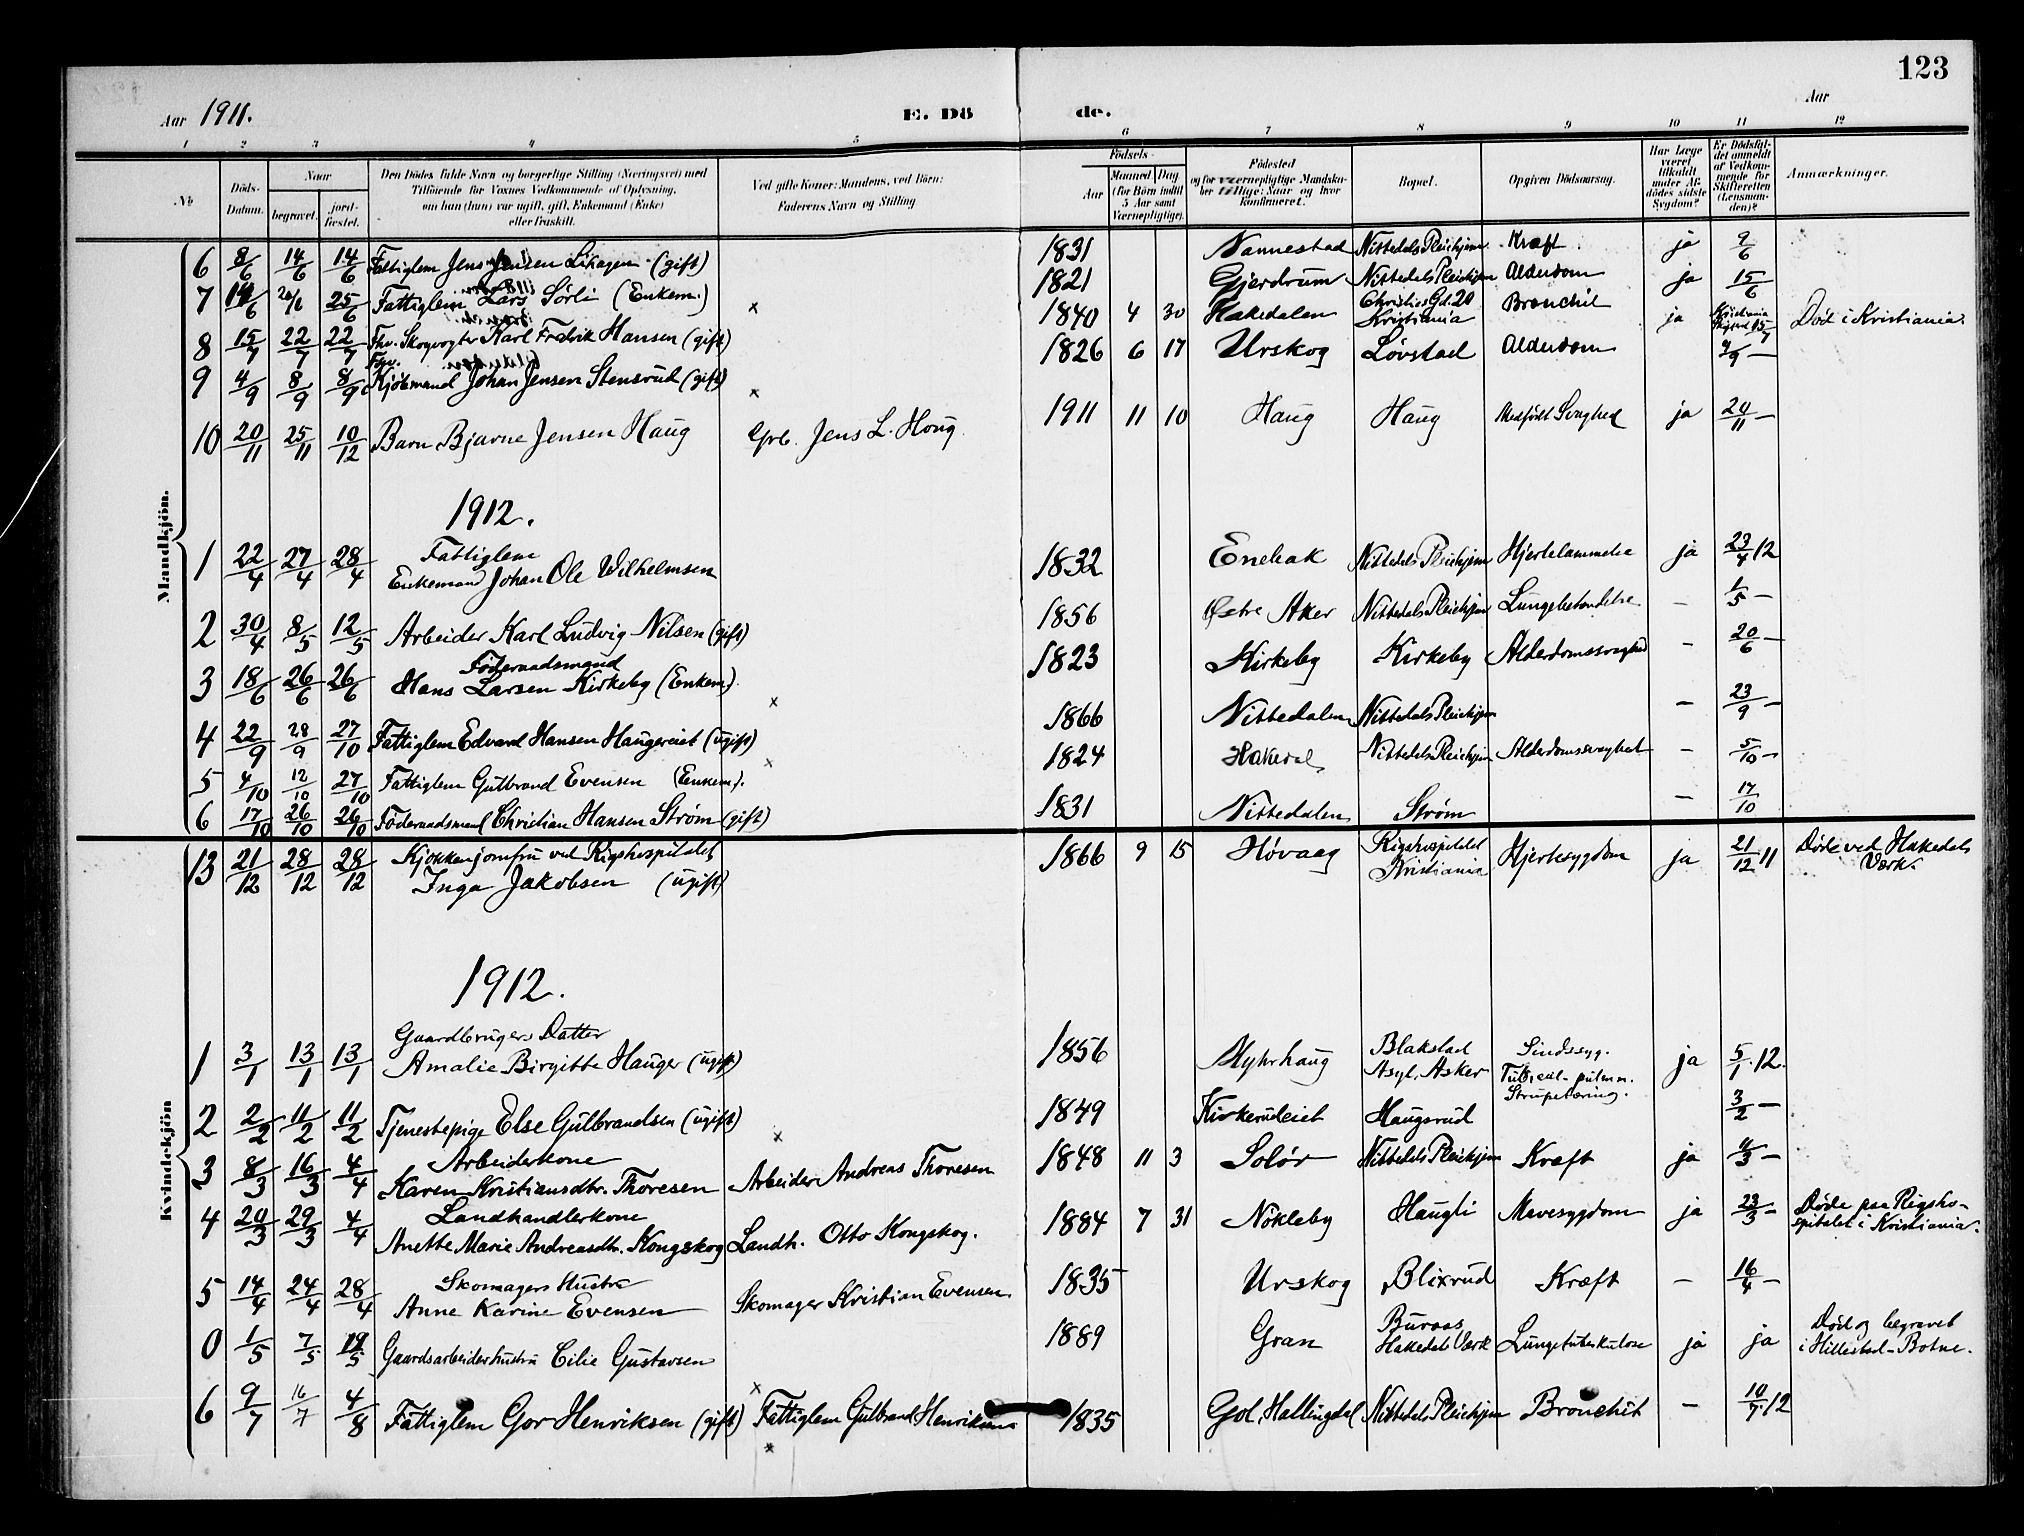 123
Aar 1911.
E. Dö
de.
Aar
1 2 3 4 5 6 7 8 9 10 11 12
No
Döds-Datum.
Naar
begravet. jordfæstet.
Den Dödes fulde Navn og borgerlige Stilling (Næringsvei) med
Tilföiende for Voxnes Vedkommende af Oplysning,
om han (hun) var ugift, gift, Enkemand (Enke)
eller fraskilt.
Ved gifte Koner: Mandens, ved Börn:
Faderens Navn og Stilling
Födsels-
Aar
Maaned Dag
(for Börn indtil
5 Aar samt
Værnepligtige).
Födested
og for værnepligtige Mandskaber tillige: Naar og hvor
konfirmeret.
Bopæl.
Opgiven Dödsaarsag.
Har Læge været tilkaldt under Afdödes sidste Sygdom?
Er Dödsfaldet anmeldt af Vedkommende for Skifteretten (Lensmanden)?
Anmærkninger.
Mandkjön.
6 8/6 14/6 14/6 Fattiglem Jens Jensen Likagen (gift) 1831 Nannestad Nittedals Pleiehjem Kræft ja 9/6
7 14/6 20/6 25/6 Fattiglem Lars Sörli (Enkem.) x 1821 Gjerdrum Nittedals Pleiehjem Alderdom ja 15/6
8 15/7 22/7 22/7 Fhv. Skogvogter Karl Fredrik Hansen (gift) 1840 4 30 Hakedalen Christies Gd. 20 Kristiania Bronchit ja Kristiania 15/7 Död i Kristiania.
9 4/9 8/9 8/9 Fhv. Kjöbmand Johan Jensen Stensrud (gift) x 1826 6 17 Urskog Lövstad Alderdom 4/9 —
10 20/11 25/11 10/12 Barn Bjarne Jensen Haug Grb. Jens L. Houg 1911 11 10 Haug Haug Medfödt Svaghed ja 20/11 —
1912.
1 22/4 27/4 28/4 Fattiglem
Enkemand Johan Ole Wilhelmsen 1832 Enebak Nittedals Pleiehjem Hjertelammelse ja 23/4 12
2 30/4 8/5 12/5 Arbeider Karl Ludvig Nilsen (gift) 1856 Östre Aker Nittedals Pleiehjem Lungebetændelse — 1/5 —
3 18/6 26/6 26/6 Föderaadsmand
Hans Larsen Kirkeby (Enkem). x 1823 Kirkeby Kirkeby Alderdomssvaghed — 20/6 —
4 22/9 28/9 27/10 Fattiglem Edvard Hansen Haugereiet (ugift) x 1866 Nittedalen Nittedals Pleiehjem — 23/9 —
5 4/10 12/10 27/10 Fattiglem Gulbrand Evensen (Enkem). 1824 Hakedal Nittedals Pleiehjem Alderdomssvaghet — 5/10 —
6 17/10 26/10 26/10 Föderaadsmand Christian Hansen Ström (gift) 1831 Nittedalen Ström — 17/10
Kvindekjön
13 21/12 28/12 28/12 Kjøkkenjomfru ved Rigshospitalet
Inga Jakobsen (ugift) 1866 9 15 Hövaag Rigshospitalet Kristiania Hjertesygdom ja 21/12 11 Döde ved Hakedals Værk.
1912.
1 3/1 13/1 13/1 Gaardbrugers Datter
Amalie Birgitte Hauger (ugift) 1856 Myhrhaug Blakstad Asyl, Asker Sindssyg. Tubercul. pulmon. ja 5/1 12.
2 2/2 11/2 11/2 Tjenestepige Else Gulbrandsen (ugift) x 1849 Kirkerudeiet Haugsrud Strupetæring. 3/2 —
3 8/3 16/3 4/4 Arbeiderkone
Karen Kristiansdtr. Thoresen Arbeider Andreas Thoresen 1848 11 3 Solör Nittedals Pleiehjem Kræft ja 11/3 —
4 20/3 29/3 4/4 Landhandlerkone
Anette Marie Andreasdtr. Kongskog Landh. Otto Kongskog. 1884 7 31 Nökleby Haugli Mavesygdom ja 23/3 — Döde paa Rigshospitalet i Kristiania.
5 14/4 24/4 28/4 Skomagers Hustru
Anne Karine Evensen Skomager Kristian Evensen 1835 Urskog Blixrud Kræft — 16/4 —
0 1/5 7/5 19/5 Gaardsarbeiderhustru Cilie Gustavsen 1889 Gran Buraas Hakedals Værk Lungetuberkulose ja ja Död og begravet i Hillestad-Botne.
6 9/7 16/7 4/8 Fattiglem Gor Henriksen (gift) x Fattiglem Gulbrand Henriksen x 1835 Gol, Hallingdal Nittedals Pleiehjem Bronchit — 10/7 12